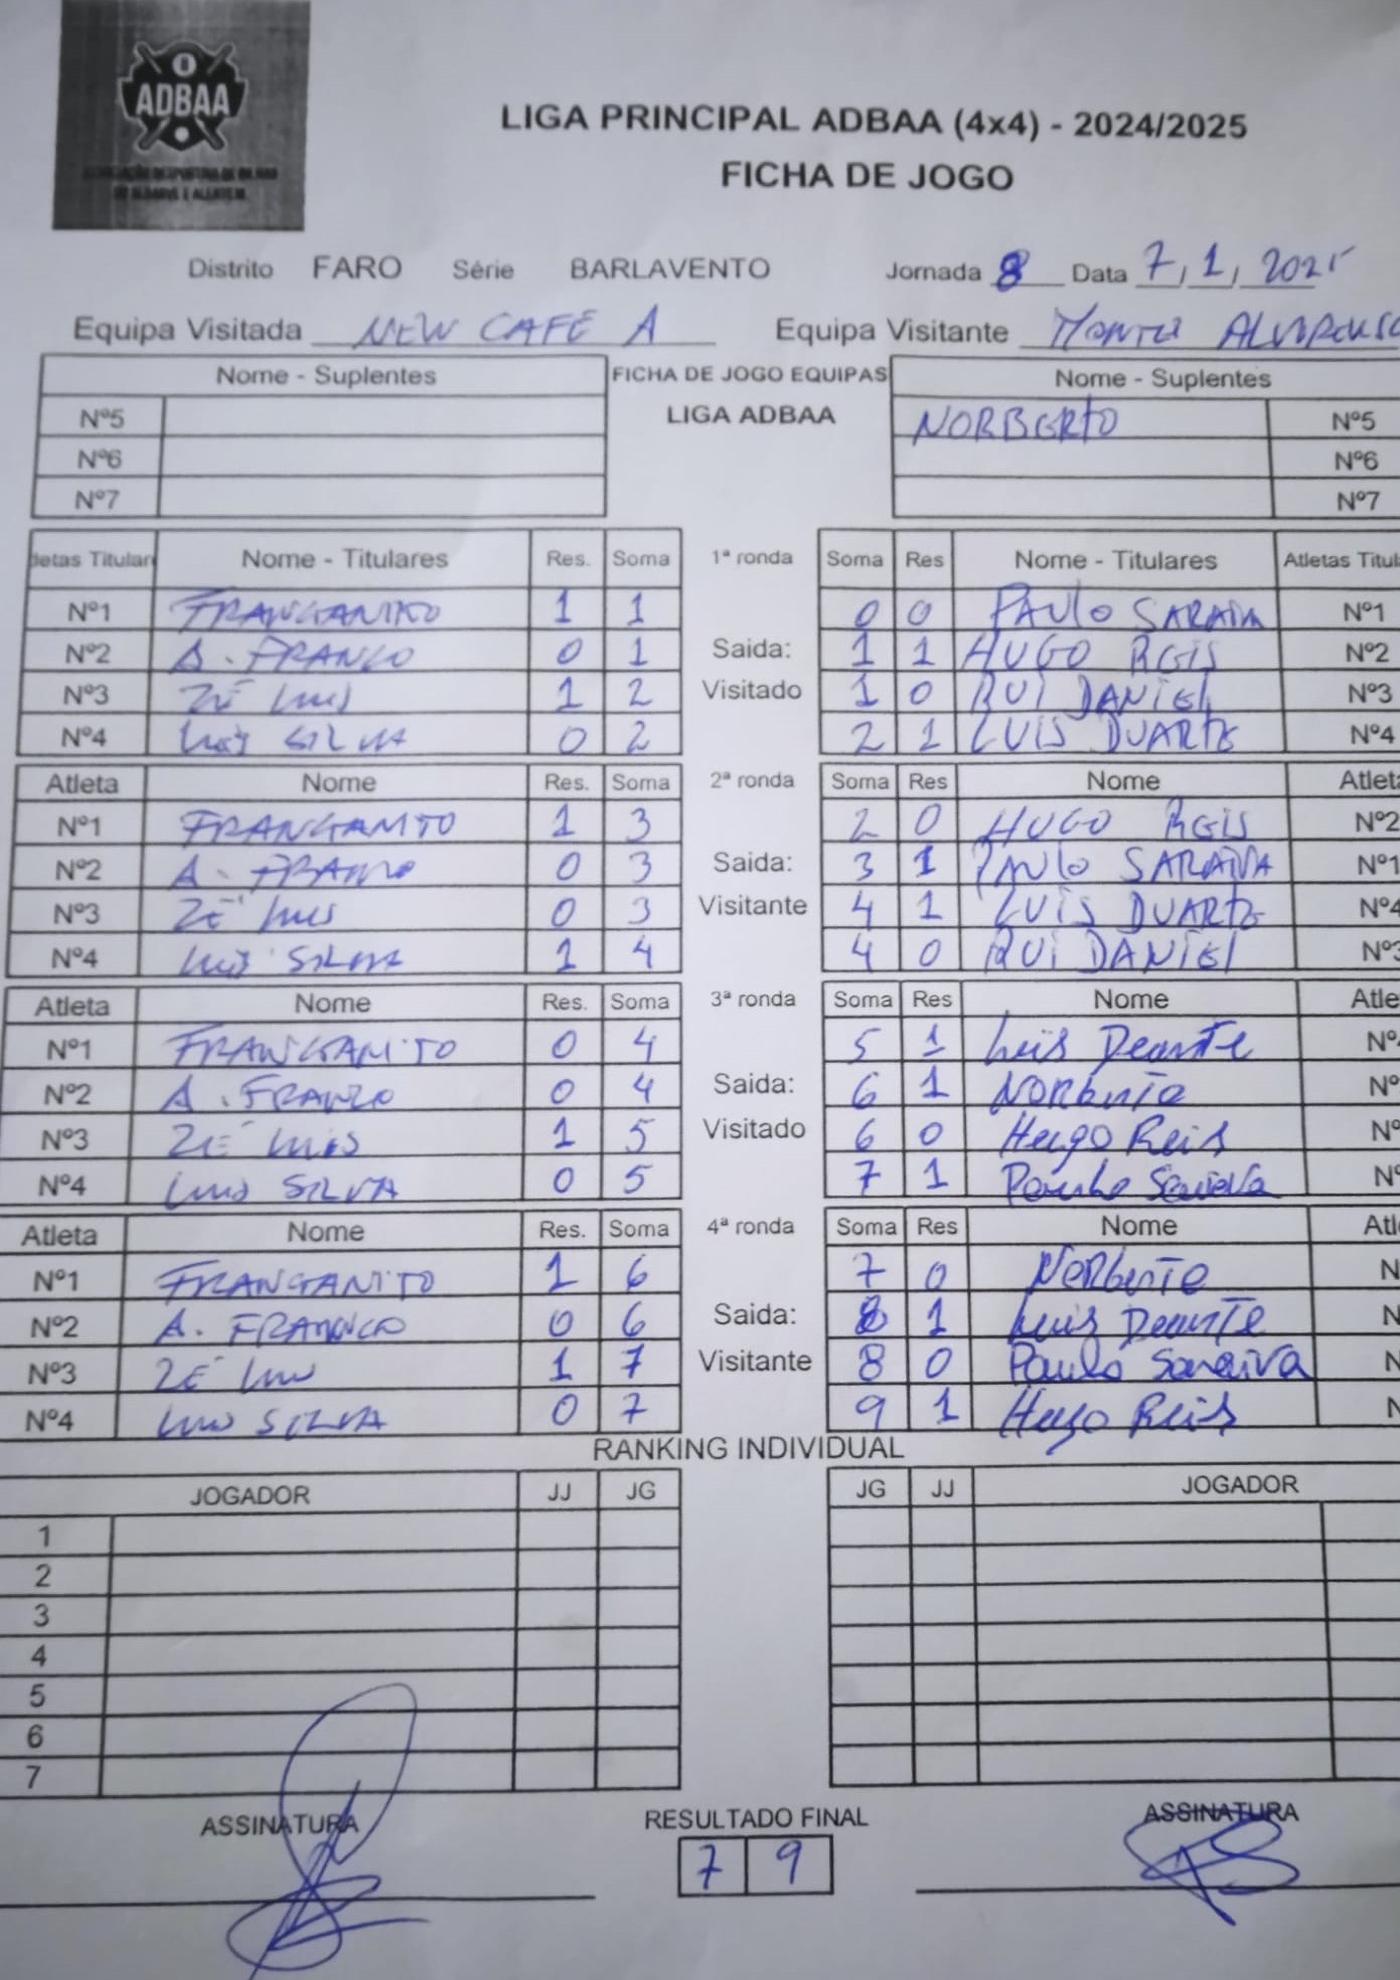 ADBAA
LIGA PRINCIPAL ADBAA (4x4) - 2024/2025
FICHA DE JOGO
Distrito FARO Série BARLAVENTO Jornada 8 Data 7/1/2025
Equipa Visitada NEW CAFÉ A Equipa Visitante
Nome - Suplentes FICHA DE JOGO EQUIPAS Nome - Suplentes
Nº5 LIGA ADBAA NORBERTO Nº5
Nº6 Nº6
Nº7 Nº7
letas Titular Nome - Titulares Res. Soma 1ª ronda Soma Res Nome - Titulares Atletas Titul
Nº1 FRANGANITO 1 1 0 0 PAULO SARAIVA Nº1
Nº2 A. FRANCO 0 1 Saida: 1 1 HUGO REIS Nº2
Nº3 ZÉ LUIS 1 2 Visitado 1 0 RUI DANIEL Nº3
Nº4 LUIS SILVA 0 2 2 1 LUIS DUARTE Nº4
Atleta Nome Res. Soma 2ª ronda Soma Res Nome Atleta
Nº1 FRANGANITO 1 3 2 0 HUGO REIS Nº2
Nº2 A. FRANCO 0 3 Saida: 3 1 PAULO SARAIVA Nº1
Nº3 ZÉ LUIS 0 3 Visitante 4 1 LUIS DUARTE Nº4
Nº4 LUIS SILVA 1 4 4 0 RUI DANIEL Nº3
Atleta Nome Res. Soma 3ª ronda Soma Res Nome Atle
Nº1 FRANGANITO 0 4 5 1 Luis Duarte Nº
Nº2 A. FRANCO 0 4 Saida: 6 1 Norberto Nº
Nº3 ZÉ LUIS 1 5 Visitado 6 0 Hugo Reis Nº
Nº4 LUIS SILVA 0 5 7 1 Paulo Saraiva Nº
Atleta Nome Res. Soma 4ª ronda Soma Res Nome Atl
Nº1 FRANGANITO 1 6 7 0 Norberto N
Nº2 A. FRANCO 0 6 Saida: 8 1 Luis Duarte N
Nº3 ZÉ LUIS 1 7 Visitante 8 0 Paulo Saraiva N
Nº4 LUIS SILVA 0 7 9 1 Hugo Reis N
RANKING INDIVIDUAL
JOGADOR JJ JG JG JJ JOGADOR
1
2
3
4
5
6
7
ASSINATURA RESULTADO FINAL ASSINATURA
7 9